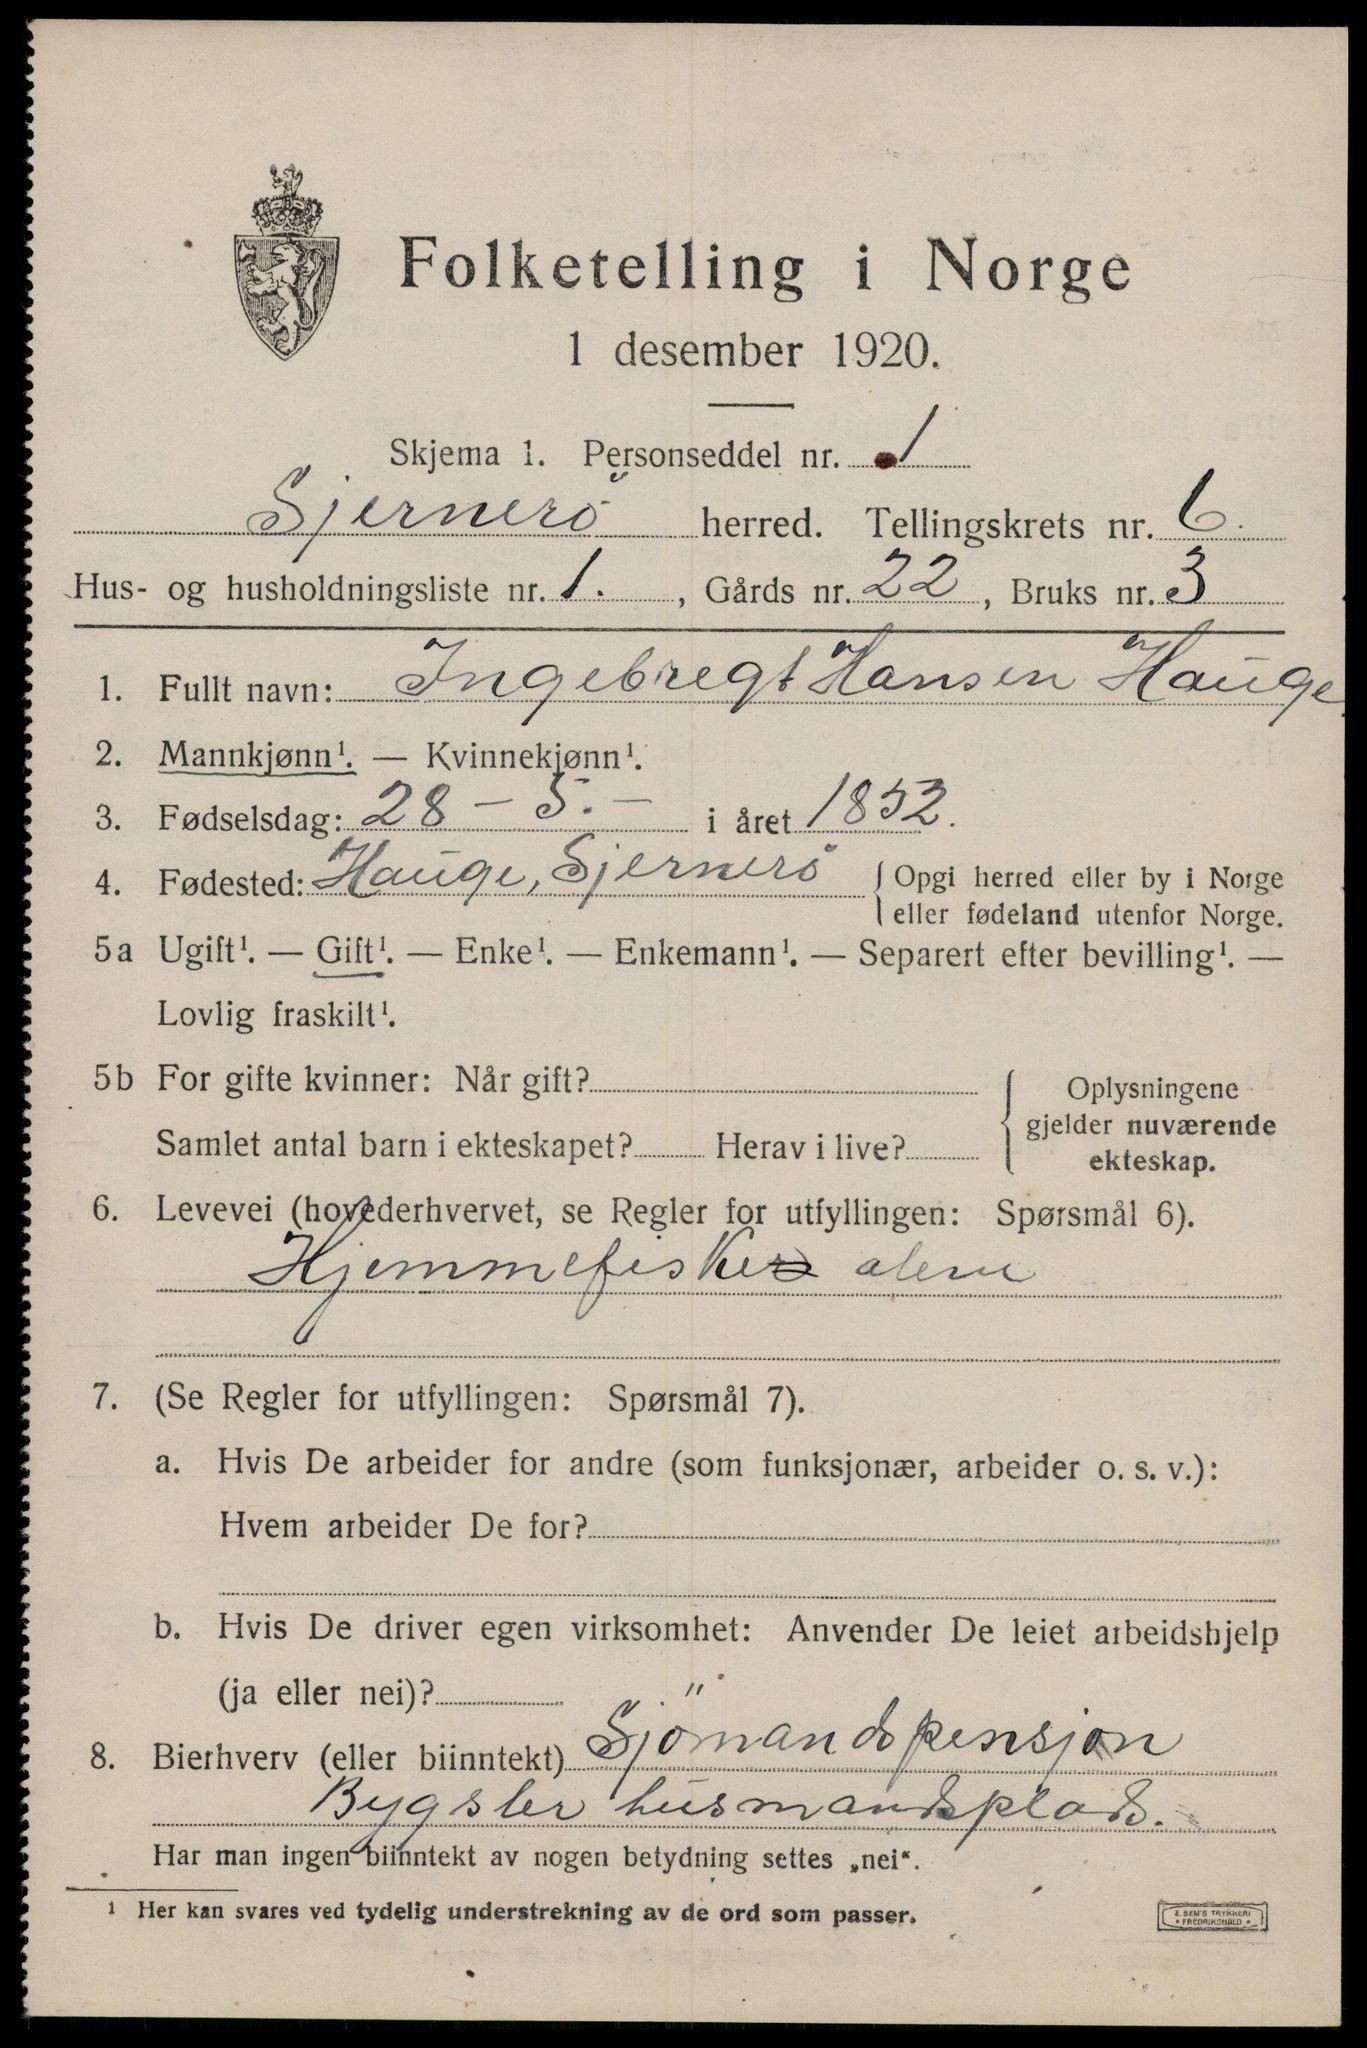 Folketelling i Norge
1 desember 1920.
Skjema 1. Personseddel nr. 1
Sjernerö herred. Tellingskrets nr. 6.
Hus- og husholdningsliste nr. 1. , Gårds nr. 22 , Bruks nr. 3
1. Fullt navn: Ingebregt Hansen Hauge
2. Mannkjønn¹. — Kvinnekjønn¹.
3. Fødselsdag: 28 – 5. – i året 1852.
4. Fødested: Hauge, Sjernerö { Opgi herred eller by i Norge
eller fødeland utenfor Norge.
5a Ugift¹. — Gift¹. — Enke¹. — Enkemann¹. — Separert efter bevilling¹. —
Lovlig fraskilt¹.
5b For gifte kvinner: Når gift?
Samlet antal barn i ekteskapet? Herav i live?
{ Oplysningene
gjelder nuværende
ekteskap.
6. Levevei (hovederhvervet, se Regler for utfyllingen: Spørsmål 6).
Hjemmefisker alene
7. (Se Regler for utfyllingen: Spørsmål 7).
a. Hvis De arbeider for andre (som funksjonær, arbeider o. s. v.):
Hvem arbeider De for?
b. Hvis De driver egen virksomhet: Anvender De leiet arbeidshjelp
(ja eller nei)?
8. Bierhverv (eller biinntekt) Sjömandspensjon
Bygsler husmandsplads.
Har man ingen biinntekt av nogen betydning settes „nei“.
¹ Her kan svares ved tydelig understrekning av de ord som passer.
E. SEM'S TRYKKERI
* FREDRIKSHALD *